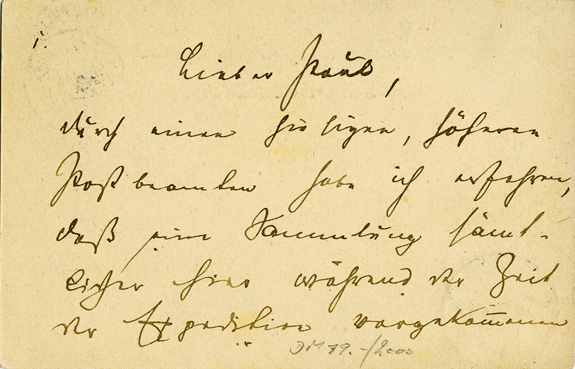 1.
Lieber Paul,
durch einen hiesigen, höheren
Postbeamten habe ich erfahren,
daß eine Sammlung sämt-
licher hier während der Zeit
der Expedition vorgekommenen
DM 79.-/2000